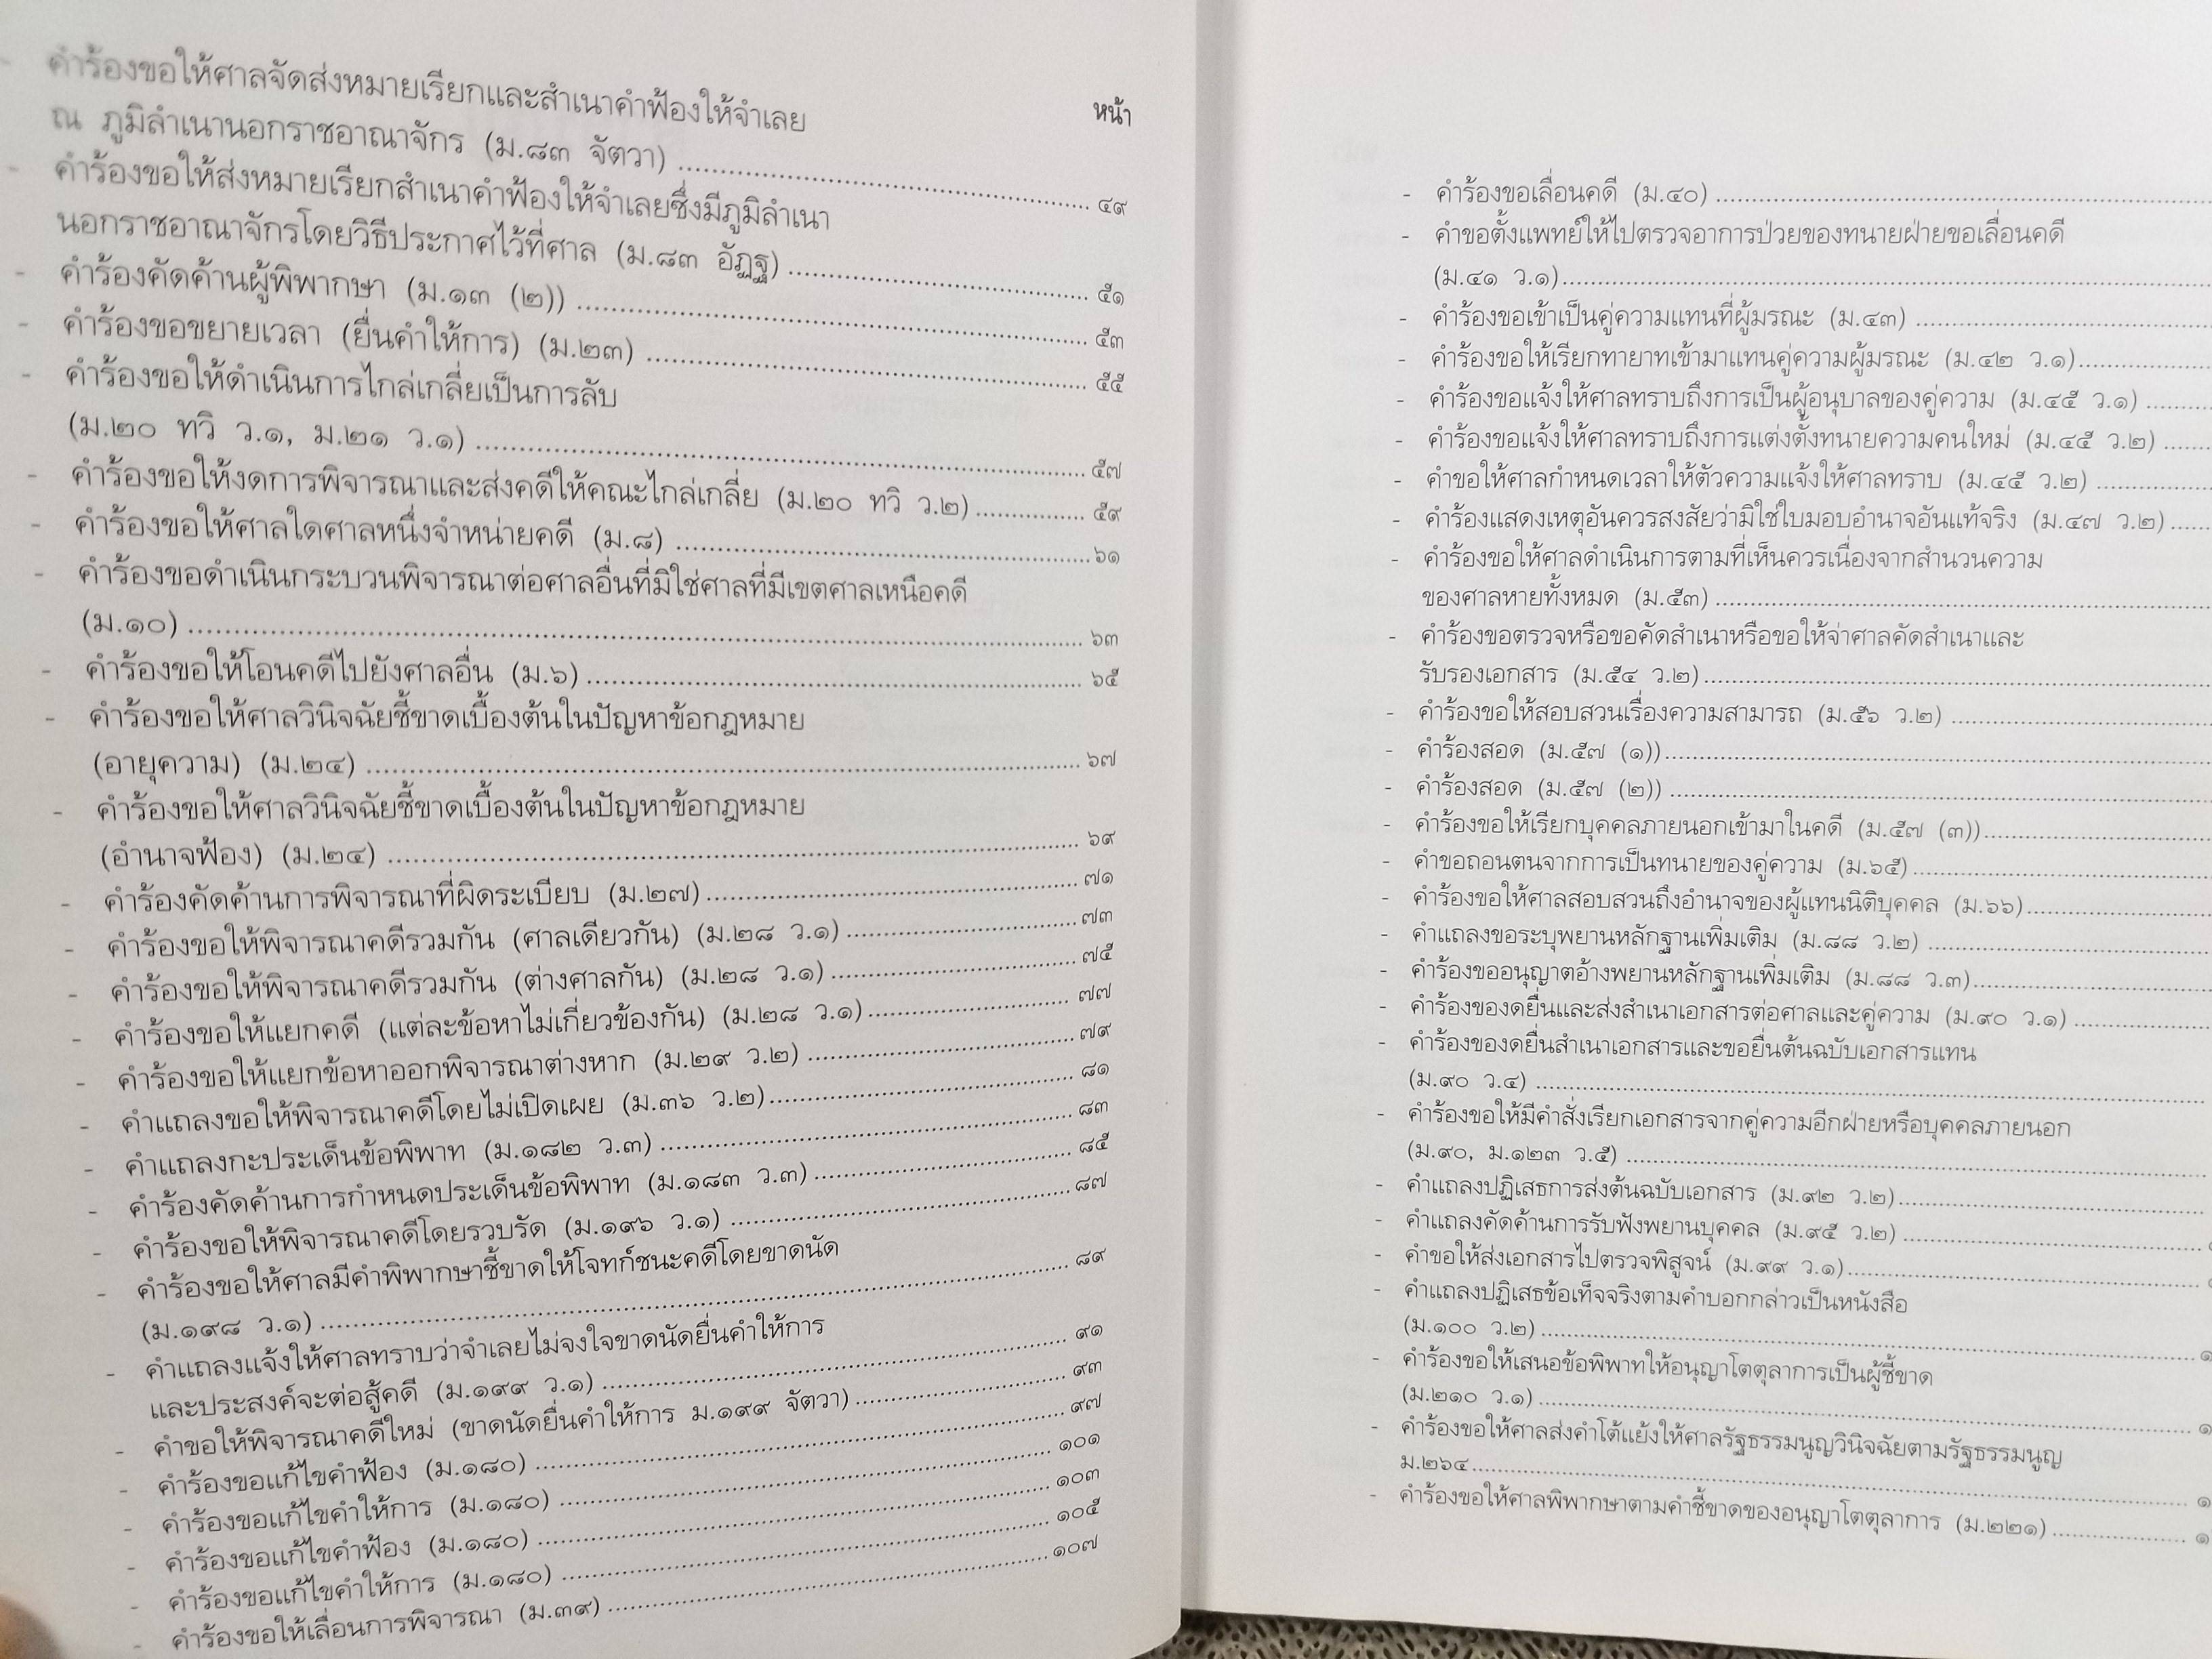 หน้า
- คำร้องขอให้ศาลจัดส่งหมายเรียกและสำเนาคำฟ้องให้จำเลย
ณ ภูมิลำเนานอกราชอาณาจักร (ม.๘๓ จัตวา) ........ ๔๙
- คำร้องขอให้ส่งหมายเรียกสำเนาคำฟ้องให้จำเลยซึ่งมีภูมิลำเนา
นอกราชอาณาจักรโดยวิธีประกาศไว้ที่ศาล (ม.๘๓ อัฏฐ) ........ ๕๑
- คำร้องคัดค้านผู้พิพากษา (ม.๑๓ (๒)) ........ ๕๓
- คำร้องขอขยายเวลา (ยื่นคำให้การ) (ม.๒๓) ........ ๕๕
- คำร้องขอให้ดำเนินการไกล่เกลี่ยเป็นการลับ
(ม.๒๐ ทวิ ว.๑, ม.๒๑ ว.๑) ........ ๕๗
- คำร้องขอให้งดการพิจารณาและส่งคดีให้คณะไกล่เกลี่ย (ม.๒๐ ทวิ ว.๒) ........ ๕๙
- คำร้องขอให้ศาลใดศาลหนึ่งจำหน่ายคดี (ม.๘) ........ ๖๑
- คำร้องขอดำเนินกระบวนพิจารณาต่อศาลอื่นที่มิใช่ศาลที่มีเขตศาลเหนือคดี
(ม.๑๐) ........ ๖๓
- คำร้องขอให้โอนคดีไปยังศาลอื่น (ม.๖) ........ ๖๕
- คำร้องขอให้ศาลวินิจฉัยชี้ขาดเบื้องต้นในปัญหาข้อกฎหมาย
(อายุความ) (ม.๒๔) ........ ๖๗
- คำร้องขอให้ศาลวินิจฉัยชี้ขาดเบื้องต้นในปัญหาข้อกฎหมาย
(อำนาจฟ้อง) (ม.๒๔) ........ ๖๙
- คำร้องคัดค้านการพิจารณาที่ผิดระเบียบ (ม.๒๗) ........ ๗๑
- คำร้องขอให้พิจารณาคดีรวมกัน (ศาลเดียวกัน) (ม.๒๘ ว.๑) ........ ๗๓
- คำร้องขอให้พิจารณาคดีรวมกัน (ต่างศาลกัน) (ม.๒๘ ว.๑) ........ ๗๕
- คำร้องขอให้แยกคดี (แต่ละข้อหาไม่เกี่ยวข้องกัน) (ม.๒๘ ว.๑) ........ ๗๗
- คำร้องขอให้แยกข้อหาออกพิจารณาต่างหาก (ม.๒๙ ว.๒) ........ ๗๙
- คำแถลงขอให้พิจารณาคดีโดยไม่เปิดเผย (ม.๓๖ ว.๒) ........ ๘๑
- คำแถลงกะประเด็นข้อพิพาท (ม.๑๘๒ ว.๓) ........ ๘๓
- คำร้องคัดค้านการกำหนดประเด็นข้อพิพาท (ม.๑๘๓ ว.๓) ........ ๘๕
- คำร้องขอให้พิจารณาคดีโดยรวบรัด (ม.๑๙๖ ว.๑) ........ ๘๗
- คำร้องขอให้ศาลมีคำพิพากษาชี้ขาดให้โจทก์ชนะคดีโดยขาดนัด
(ม.๑๙๘ ว.๑) ........ ๘๙
- คำแถลงแจ้งให้ศาลทราบว่าจำเลยไม่จงใจขาดนัดยื่นคำให้การ
และประสงค์จะต่อสู้คดี (ม.๑๙๙ ว.๑) ........ ๙๑
- คำขอให้พิจารณาคดีใหม่ (ขาดนัดยื่นคำให้การ ม.๑๙๙ จัตวา) ........ ๙๓
- คำร้องขอแก้ไขคำฟ้อง (ม.๑๘๐) ........ ๙๗
- คำร้องขอแก้ไขคำให้การ (ม.๑๘๐) ........ ๑๐๑
- คำร้องขอแก้ไขคำฟ้อง (ม.๑๘๐) ........ ๑๐๓
- คำร้องขอแก้ไขคำให้การ (ม.๑๘๐) ........ ๑๐๕
- คำร้องขอให้เลื่อนการพิจารณา (ม.๓๙) ........ ๑๐๗
- คำร้องขอเลื่อนคดี (ม.๔๐) ........
- คำขอตั้งแพทย์ให้ไปตรวจอาการป่วยของทนายฝ่ายขอเลื่อนคดี
(ม.๔๑ ว.๑) ........
- คำร้องขอเข้าเป็นคู่ความแทนที่ผู้มรณะ (ม.๔๓) ........
- คำร้องขอให้เรียกทายาทเข้ามาแทนคู่ความผู้มรณะ (ม.๔๒ ว.๑) ........
- คำร้องขอแจ้งให้ศาลทราบถึงการเป็นผู้อนุบาลของคู่ความ (ม.๔๕ ว.๑) ........
- คำร้องขอแจ้งให้ศาลทราบถึงการแต่งตั้งทนายความคนใหม่ (ม.๔๕ ว.๒) ........
- คำขอให้ศาลกำหนดเวลาให้ตัวความแจ้งให้ศาลทราบ (ม.๔๕ ว.๒) ........
- คำร้องแสดงเหตุอันควรสงสัยว่ามิใช่ใบมอบอำนาจอันแท้จริง (ม.๔๗ ว.๒) ........
- คำร้องขอให้ศาลดำเนินการตามที่เห็นควรเนื่องจากสำนวนความ
ของศาลหายทั้งหมด (ม.๕๓) ........
- คำร้องขอตรวจหรือขอคัดสำเนาหรือขอให้จ่าศาลคัดสำเนาและ
รับรองเอกสาร (ม.๕๔ ว.๒) ........
- คำร้องขอให้สอบสวนเรื่องความสามารถ (ม.๕๖ ว.๒) ........
- คำร้องสอด (ม.๕๗ (๑)) ........
- คำร้องสอด (ม.๕๗ (๒)) ........
- คำร้องขอให้เรียกบุคคลภายนอกเข้ามาในคดี (ม.๕๗ (๓)) ........
- คำขอถอนตนจากการเป็นทนายของคู่ความ (ม.๖๕) ........
- คำร้องขอให้ศาลสอบสวนถึงอำนาจของผู้แทนนิติบุคคล (ม.๖๖) ........
- คำแถลงขอระบุพยานหลักฐานเพิ่มเติม (ม.๘๘ ว.๒) ........
- คำร้องขออนุญาตอ้างพยานหลักฐานเพิ่มเติม (ม.๘๘ ว.๓) ........
- คำร้องของดยื่นและส่งสำเนาเอกสารต่อศาลและคู่ความ (ม.๙๐ ว.๑) ........
- คำร้องของดยื่นสำเนาเอกสารและขอยื่นต้นฉบับเอกสารแทน
(ม.๙๐ ว.๔) ........
- คำร้องขอให้มีคำสั่งเรียกเอกสารจากคู่ความอีกฝ่ายหรือบุคคลภายนอก
(ม.๙๐, ม.๑๒๓ ว.๕) ........
- คำแถลงปฏิเสธการส่งต้นฉบับเอกสาร (ม.๙๒ ว.๒) ........
- คำแถลงคัดค้านการรับฟังพยานบุคคล (ม.๙๕ ว.๒) ........
- คำขอให้ส่งเอกสารไปตรวจพิสูจน์ (ม.๙๙ ว.๑) ........
- คำแถลงปฏิเสธข้อเท็จจริงตามคำบอกกล่าวเป็นหนังสือ
(ม.๑๐๐ ว.๒) ........ ๑
- คำร้องขอให้เสนอข้อพิพาทให้อนุญาโตตุลาการเป็นผู้ชี้ขาด
(ม.๒๑๐ ว.๑) ........ ๑
- คำร้องขอให้ศาลส่งคำโต้แย้งให้ศาลรัฐธรรมนูญวินิจฉัยตามรัฐธรรมนูญ
ม.๒๖๔ ........ ๑
- คำร้องขอให้ศาลพิพากษาตามคำชี้ขาดของอนุญาโตตุลาการ (ม.๒๒๑) ........ ๑